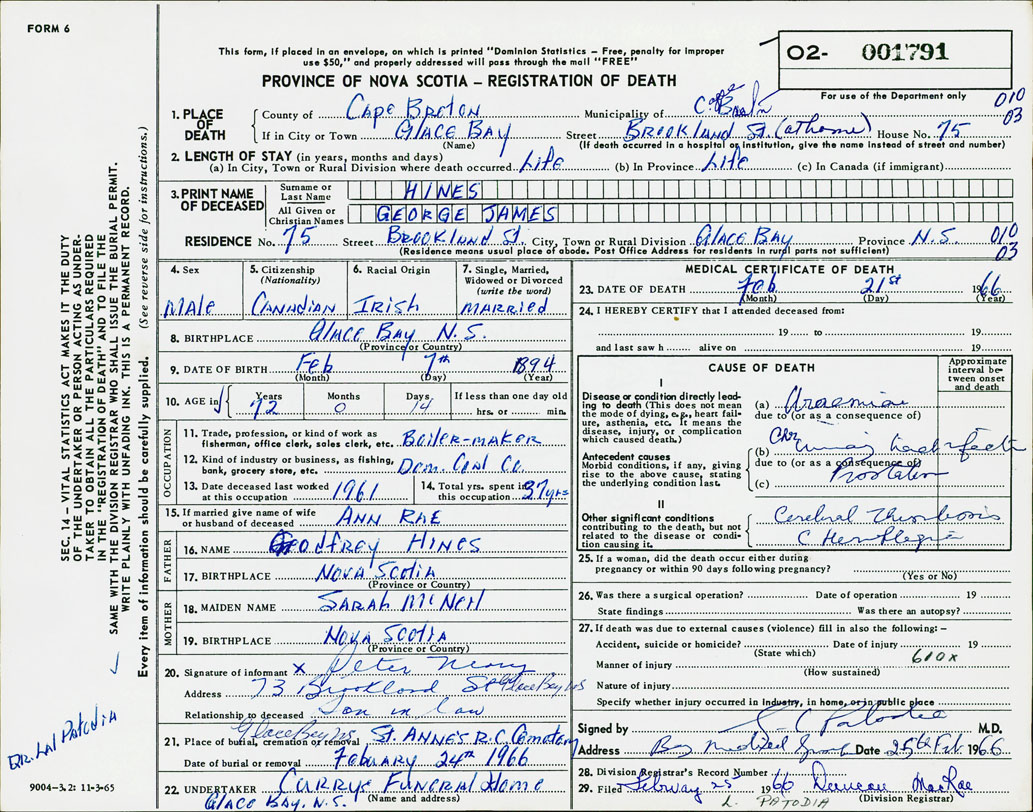 FORM 6
This form, if placed in an envelope, on which is printed "Dominion Statistics – Free, penalty for improper
use $50," and properly addressed will pass through the mail "FREE"
O2- 001791
PROVINCE OF NOVA SCOTIA – REGISTRATION OF DEATH
For use of the Department only
010
03
1. PLACE OF DEATH County of Cape Breton Municipality of Cape Breton
If in City or Town GLACE BAY Street BROOKLAND St. (at home) House No. 75
(Name) (If death occurred in a hospital or institution, give the name instead of street and number)
2. LENGTH OF STAY (in years, months and days)
(a) In City, Town or Rural Division where death occurred Life (b) In Province Life (c) In Canada (if immigrant)
3. PRINT NAME OF DECEASED Surname or Last Name HINES
All Given or Christian Names GEORGE JAMES
RESIDENCE No. 75 Street BROOKLAND St. City, Town or Rural Division GLACE BAY Province N.S. 010
(Residence means usual place of abode. Post Office Address for residents in rural parts not sufficient) 03
4. Sex 5. Citizenship (Nationality) 6. Racial Origin 7. Single, Married, Widowed or Divorced (write the word)
Male CANADIAN IRISH MARRIED
8. BIRTHPLACE GLACE BAY N.S.
(Province or Country)
9. DATE OF BIRTH Feb 7th 1894
(Month) (Day) (Year)
10. AGE in Years Months Days If less than one day old
72 0 14 hrs. or min.
OCCUPATION
11. Trade, profession, or kind of work as fisherman, office clerk, sales clerk, etc. Boiler-maker
12. Kind of industry or business, as fishing, bank, grocery store, etc. Dom. Coal Co.
13. Date deceased last worked at this occupation 1961 14. Total yrs. spent in this occupation 37 yrs
15. If married give name of wife or husband of deceased ANN RAE
FATHER
16. NAME Godfrey HINES
17. BIRTHPLACE NOVA SCOTIA
(Province or Country)
MOTHER
18. MAIDEN NAME SARAH McNeil
19. BIRTHPLACE NOVA SCOTIA
(Province or Country)
20. Signature of informant X Peter Neary
Address 73 Brookland St Glace Bay NS
Relationship to deceased Son in law
Glace Bay NS
21. Place of burial, cremation or removal St. ANNES R.C. Cemetery
Date of burial or removal February 24th 1966
22. UNDERTAKER CURRYS FUNERAL Home
GLACE BAY. N.S. (Name and address)
MEDICAL CERTIFICATE OF DEATH
23. DATE OF DEATH Feb 21st 1966
(Month) (Day) (Year)
24. I HEREBY CERTIFY that I attended deceased from:
19 to 19
and last saw h alive on 19
CAUSE OF DEATH
Approximate interval between onset and death
I
Disease or condition directly leading to death (This does not mean the mode of dying, e.g., heart failure, asthenia, etc. It means the disease, injury, or complication which caused death.)
(a) Uraemia
due to (or as a consequence of)
Antecedent causes
Morbid conditions, if any, giving rise to the above cause, stating the underlying condition last.
(b) Chr
due to (or as a consequence of)
(c)
II
Other significant conditions contributing to the death, but not related to the disease or condition causing it.
Cerebral Thrombosis
C Hemiplegia
25. If a woman, did the death occur either during pregnancy or within 90 days following pregnancy?
(Yes or No)
26. Was there a surgical operation? Date of operation 19
State findings Was there an autopsy?
27. If death was due to external causes (violence) fill in also the following: –
Accident, suicide or homicide? Date of injury 19
(State which) 610X
Manner of injury
(How sustained)
Nature of injury
Specify whether injury occurred in industry, in home, or in public place
Signed by L C Patodia M.D.
Address Bay Medical Group Date 25th Feb. 1966
28. Division Registrar's Record Number
29. Filed February 25 1966 Duncan MacRae
(Division Registrar)
L. PATODIA
SEC. 14 – VITAL STATISTICS ACT MAKES IT THE DUTY
OF THE UNDERTAKER OR PERSON ACTING AS UNDER-
TAKER TO OBTAIN ALL THE PARTICULARS REQUIRED
IN THE "REGISTRATION OF DEATH" AND TO FILE THE
SAME WITH THE DIVISION REGISTRAR WHO SHALL ISSUE THE BURIAL PERMIT.
WRITE PLAINLY WITH UNFADING INK. THIS IS A PERMANENT RECORD.
Every item of information should be carefully supplied. (See reverse side for instructions.)
DR. LAL PATODIA
9004-3.21 11-3-65